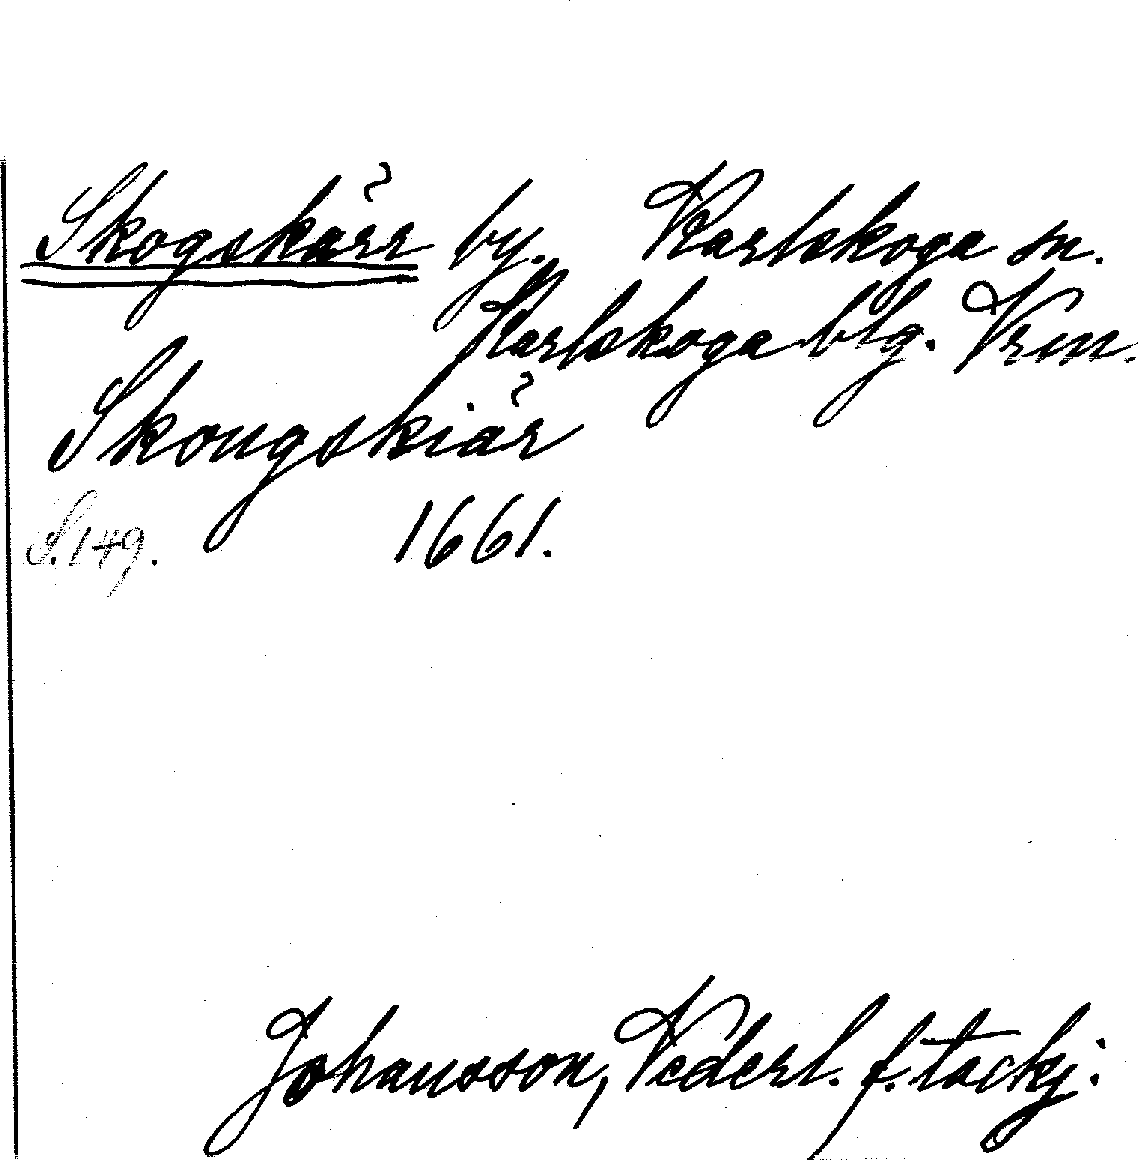 Skogskärr by. Karlskoga sn.
Karlskoga blg. Vrm.
Skougskiär
S. 149. 1661.
Johansson, Vederl. f. tackj: